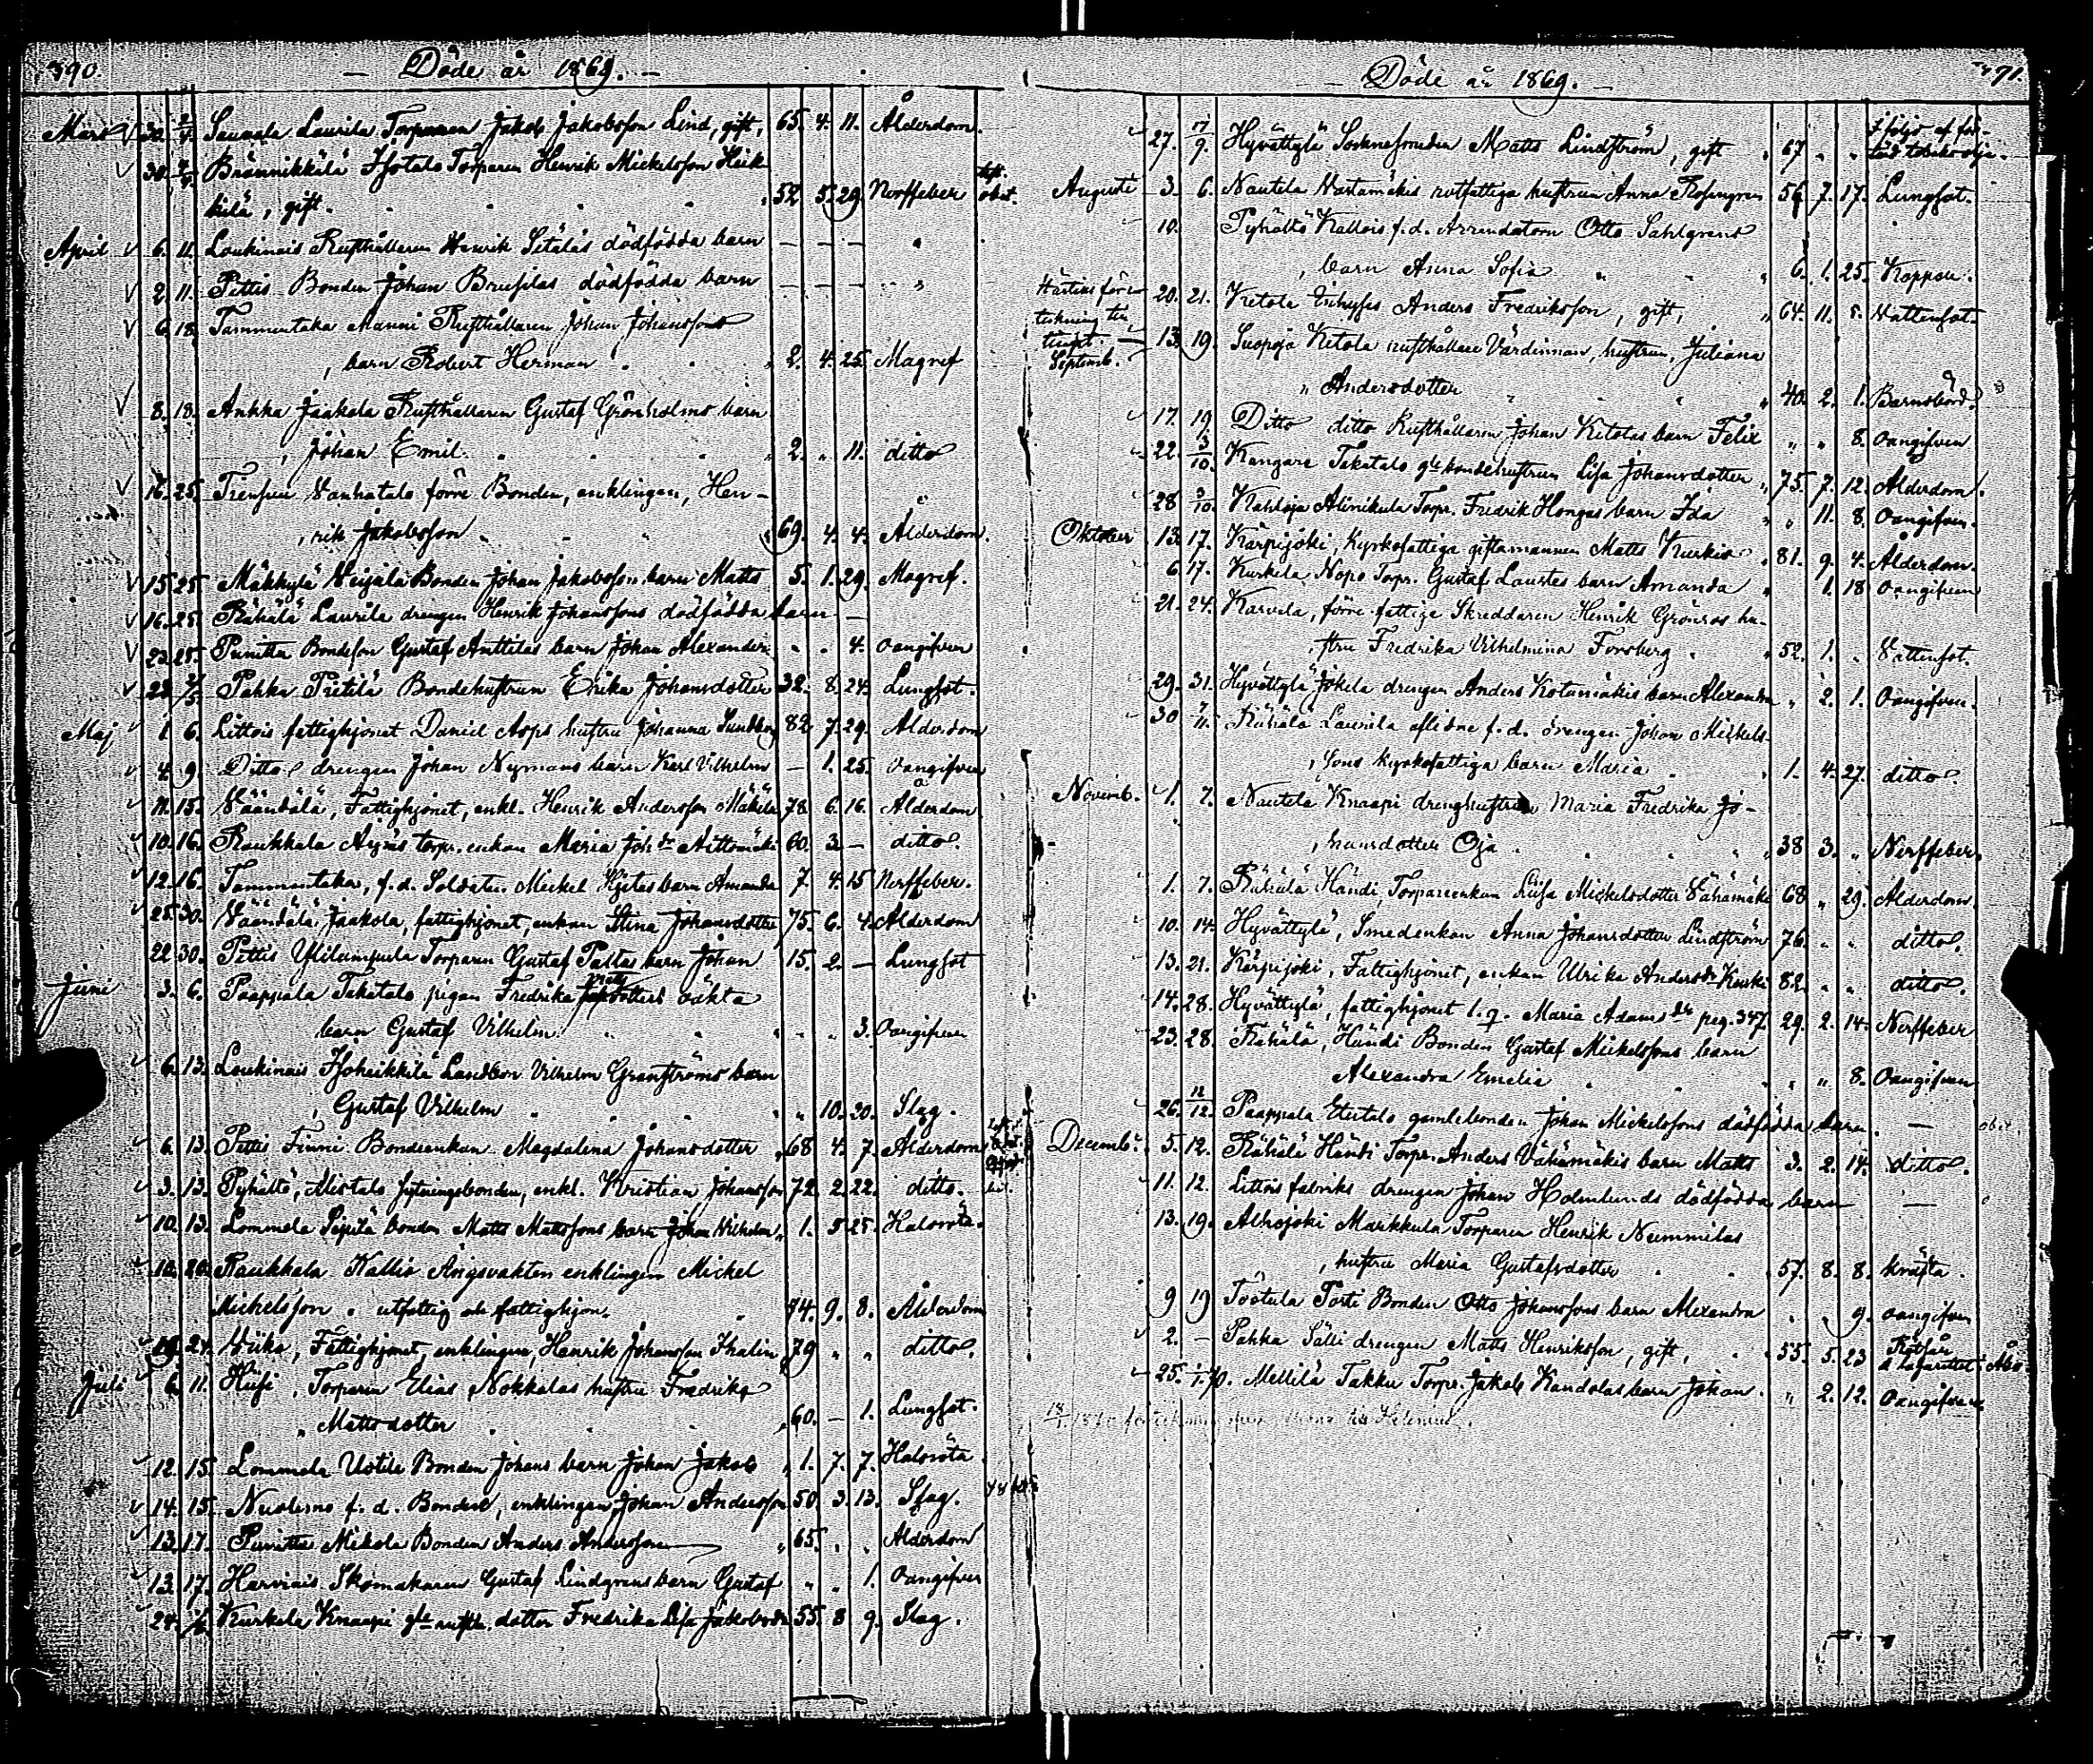 390.
— Döde år 1869. —
Mars 30. 2/4. Saurala Laurila Torparen Jakob Jakobsson Lind, gift, 65. 4. 11. Ålderdom.
30. 4/4. Brännikkälä Isotalo Torparen Henrik Mickelsson Heik-
kilä, gift. 52 5. 29. Nerffeber
April 6. 11. Loukinais Rusthållaren Henrik Sitälös dödfödda barn — — —
2. 11. Pettis Bonden Johan Brusilas dödfödda barn — — —
6. 18. Tammentaka Manni Rusthållaren Johan Johanssons
, barn Robert Herman 2. 4. 25. Magref
8. 18. Ankka Jaakola Rusthållaren Gustaf Grönholms barn
, Johan Emil. 2. " 11. ditto
16. 25. Vanhatalo förre Bonden, enklingen, Hen-
, rik Jakobsson 69. 4. 4. Ålderdom.
15. 25. Mäkkylä Seijälä Bonden Johan Jakobssons barn Matts 5. 1. 29. Magref.
16. 25. Rähälä Laurila drengen Henrik Johanssons dödfödda barn —
23. 25. Punitta Bondeson Gustaf Anttilas barn Johan Alexander " " 4. Oangifven
23. 2/5. Pahka Pietilä Bondehustrun Erika Johansdotter 32. 8. 24. Lungsot.
Maj 1. 6. Littois fattighjonet Daniel Asps hustru Johanna Sundberg 82 7. 29. Ålderdom
4. 9. Ditto drengen Johan Nymans barn Karl Vilhelm — 1. 25. Oangifven
11. 15. Väänälä, Fattighjonet, enkl. Henrik Andersson Mäkilä 78 6. 16. Ålderdom
10. 16. Raukkala Äijäis torp. enkan Maria Joh:dr Aittamäki 60. 3. — ditto.
12. 16. Tammentaka, f.d. Soldaten Mickel Hjetas barn Amanda 7 4. 15 Nerffeber.
25. 30. Väänälä Jaakola, fattighjonet, enkan Stina Johansdotter 75. 6. 4. Ålderdom
22 30. Pettis Ylilemmula Torparen Gustaf Pallas barn Johan 15. 2. — Lungsot
Juni 3. 6. Paappala Takatalo pigan Fredrika Matts dotters oäkta
barn Gustaf Vilhelm " " 3. Oangifven
6. 13. Loukinais Isoheikkilä Landbon Vilhelm Granströms barn
, Gustaf Vilhelm " 10. 20. Slag.
6. 13. Pettis Finni Bondeenkan Magdalena Johansdotter 68 4. 7. Ålderdom
3. 13. Pyhältö, Mistalo sytningsbonden, enkl. Kristian Johansson 72. 2. 22. ditto.
10. 13. Lommela Sipilä bonden Matts Mattssons barn Johan Vilhelm 1. 5 25. Halsröta.
10. 20. Raukkala Kallis Ängsvakten enklingen Mickel
Mickelsson, utfattig ob. fattighjon. 84. 9. 8. Ålderdom
19. 24. Viika, Fattighjonet, enklingen, Henrik Johansson Ihalin 79 " " ditto.
Juli 6. 11. Hiisi, Torparen Elias Nokkalas hustru Fredrika
" Mattsdotter 60. — 1. Lungsot.
12. 15. Lommela Uotila Bonden Johans barn Johan Jakob 1. 7. 7. Halsröta
14. 15. Nuolemo f.d. Bonden, enklingen, Johan Andersson 50. 3. 13. Slag.
13. 17. Punitta Mikola Bonden Anders Andersson 65. " " Ålderdom
13. 17. Harvinais Skomakaren Gustaf Lindgrens barn Gustaf " " 1. Oangifven
24. 1/8. Kurkela Knaapi gle rusth. dotter Fredrika Lisa Jakobsdr 55. 8 9. Slag.
391.
— Döde år 1869. —
27. 7/9. Hyvättylä Socknesmeden Matts Lindström, gift 67 " " I följd af för-
Augusti 3. 6. Nautela Vartamäkis rotfattiga hustrun Anna Rosengren 56 7. 17. Lungsot.
10. Pyhältö Kallois f.d. Arrendatorn Otto Sahlgrens
, barn Anna Sofia 6. 1. 25. Koppor.
20. 21. Ketola Inhyses Anders Fredriksson, gift, 64. 11. 8. Vattensot.
Septemb. 13. 19. Suopoja Ketola rusthållare Värdinnan, hustrun, Juliana
" Andersdotter 40. 2. 1. Barnsbörd.
17. 19. Ditto ditto Rusthållaren Johan Ketolas barn Felix " " 8. Oangifven
22. 3/10. Kangare Takatalo gle bondehustrun Lisa Johansdotter 75. 7. 12. Ålderdom.
28 3/10. Kahloja Alinikula Torpr. Fredrik Hongas barn Ida " 11. 8. Oangifven.
Oktober 13. 17. Kärpijoki, Kyrkofattiga giftamannen Matts Kurkio 81. 9. 4. Ålderdom.
6. 17. Kurkela Nopo Torpr. Gustaf Laurstes barn Amanda 1. 18 Oangifven
21. 24. Karvela, förre fattige Skreddaren Henrik Grönros hu-
, stru Fredrika Vilhelmina Forsberg 52. 1. " Vattensot.
29. 31. Hyvättylä Jokela drengen Anders Kotamäkis barn Alexandra " 2. 1. Oangifven.
30 7/11. Rähälä Laurila aflidne f.d. drengen Johan Mickels-
, sons kyrkofattiga barn Maria 1. 4. 27. ditto
Novemb. 1. 7. Nautela Knaapi drenghustrun Maria Fredrika Jo-
, hansdotter Oja 38 3. " Nerffeber.
1. 7. Rähälä Händi, Torpareenkan Lisa Mickelsdotter Vähämäki 68 " 29. Ålderdom.
10. 14. Hyvättylä, Smedenkan Anna Johansdotter Lindström 76. " " ditto.
13. 21. Kärpijoki, Fattighjonet, enkan Ulrika Andersdr Kurki 82. " " ditto.
14. 28. Hyvättylä, fattighjonet l. q. Maria Adamsdr pag. 347. 29. 2. 14. Nerffeber
23. 28. Rähälä, Händi Bonden Gustaf Mickelssons barn
Alexandra Emelia " " 8. Oangifven
26. 12/12. Paappala Etutalo gamlebonden Johan Mickelssons dödfödda barn. —
Decemb. 5. 12. Rähälä Händi Torpr. Anders Vähämäkis barn Matts 3. 2. 14. ditto.
11. 12. Littois fabriks drengen Johan Holmlunds dödfödda barn —
13. 19. Alhojoki Markkula Torparen Henrik Nummilas
, hustru Maria Gustafsdotter 57. 8. 8. kräfta.
9 19 Töstula Torti Bonden Otto Johanssons barn Alexandra " " 9. oangifven
2. — Pahka Sälli drengen Matts Henriksson, gift, 55. 5. 23
25. 1/1.70. Mellilä Takku Torpr. Jakob Kandolas barn Johan. " 2. 12. Oangifven